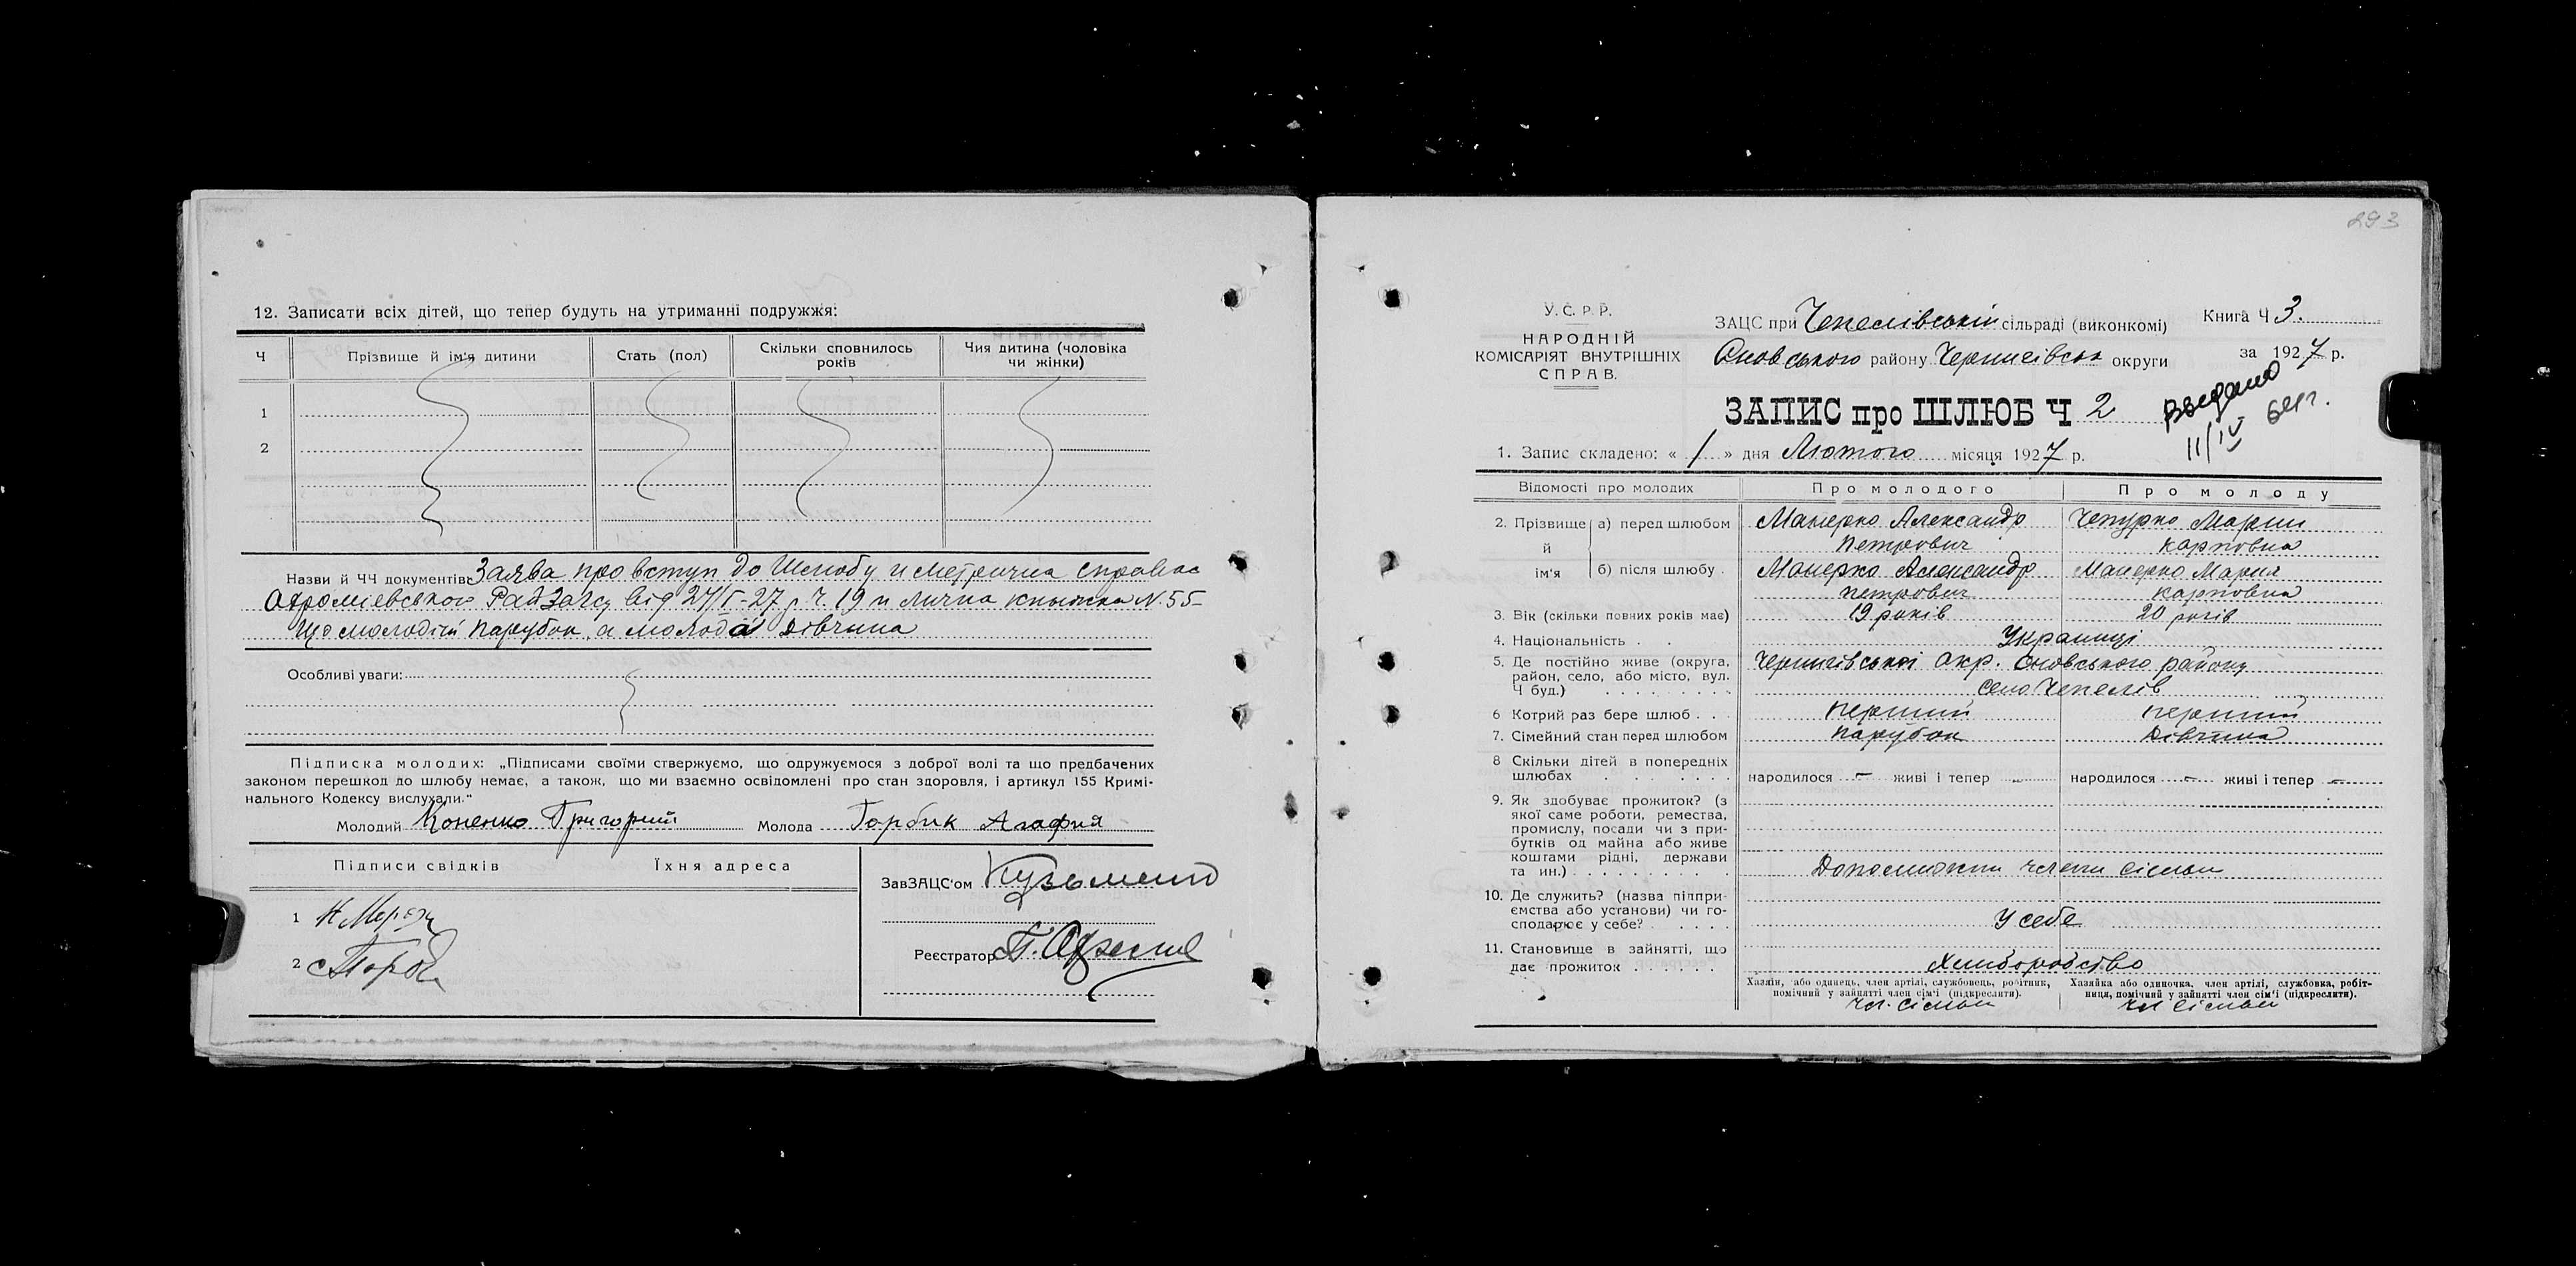 12. Записати всіх дітей, що тепер будуть на утриманні подружжя:
Ч
Прізвище й ім'я дитини
Стать (пол)
Скільки сповнилось
років
Чия дитина (чоловіка
чи жінки)
1
2
Назви й ЧЧ документів: Заява про вступ до Шлюбу и метрична
від 27/I-27 р. ч. 19 и лична книжка N. 55-
що молодий парубок, а молода дівчина
Особливі уваги:
Підписка молодих: „Підписами своїми ствержуємо, що одружуємося з доброї волі та що предбачених
законом перешкод до шлюбу немає, а також, що ми взаємно освідомлені про стан здоровля, і артикул 155 Кримі-
нального Кодексу вислухали."
Молодий Коненко Григорий Молода Горбик Агафия
Підписи свідків Їхня адреса
ЗавЗАЦС'ом Кузьменко
1
Реєстратор
2
293
У.С.Р.Р.
НАРОДНІЙ
КОМІСАРІЯТ ВНУТРІШНІХ
СПРАВ.
ЗАЦС при Чепелівській сільраді (виконкомі)
Книга Ч 3.
Сновського району Чернигівськ округи
за 1927 р.
ЗАПИС про ШЛЮБ Ч 2
Выдано
11/IV 64 г.
1. Запис складено: « 1 » дня Лютого місяця 1927 р.
Відомості про молодих
Про молодого
Про молоду
2. Прізвище й ім'я
а) перед шлюбом
Манерко Александр
Петрович
Чепурко Марии
Карповна
б) після шлюбу
Манерко Александр
Петрович
Манерко Мария
Карповна
3. Вік (скільки повних років має)
19 років
20 років
4. Національність
Украинці
5. Де постійно живе (округа,
район, село, або місто, вул.
Ч буд.)
Чернигівської окр. Сновського району
село Чепелів
6 Котрий раз бере шлюб
перший
перший
7. Сімейний стан перед шлюбом
Парубок
Дівчина
8 Скільки дітей в попередніх
шлюбах
народилося – живі і тепер –
народилося – живі і тепер –
9. Як здобуває прожиток? (з
якої саме роботи, ремества,
промислу, посади чи з при-
бутків од майна або живе
коштами рідні, держави
та ин.)
члени сісмьи
10. Де служить? (назва піпри-
ємства або установи) чи го-
сподарює у себе?
У себе
11. Становище в зайнятті, що
дає прожиток
Хліборобство
Хазяїн, або одинець, член артілі, службовець, робітник,
помічний у зайнятті член сім'ї (підкреслити).
чл. сісмьи
Хазяйка або одиночка, член артілі, службовка, робіт-
ниця, помічний у зайнятті член сім'ї (підкреслити).
чл сісмьи